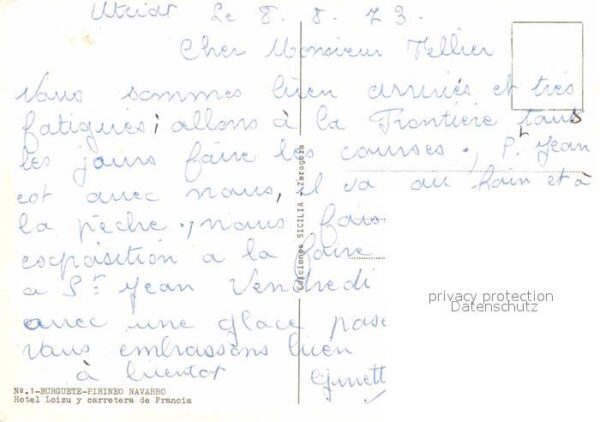 Le 8.8.73.
Cher Monsieur Tellier
nous sommes bien arrivés et très
fatigués; allons à la Frontiere tous
les jours faire les courses., P. Jean
est avec nous, il va au bain et à
la pèche., nous fais
exposition a la foire
a St Jean Vendredi
avec une glace pose
vous embrassons bien
à bientot
Ginett
Ediciones SICILIA Zaragoza
privacy protection
Datenschutz
Nº.1-BURGUETE-PIRINEO NAVARRO
Hotel Loizu y carretera de Francia